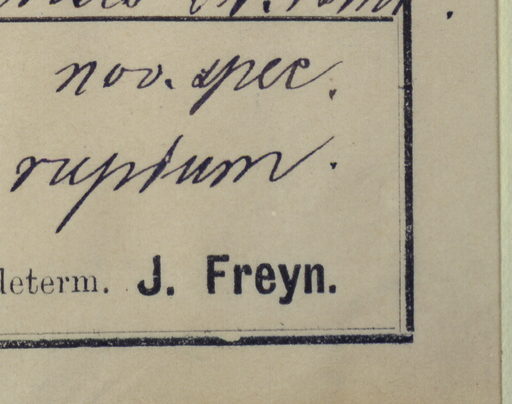 nov. spec.
ruptum.
determ. J. Freyn.